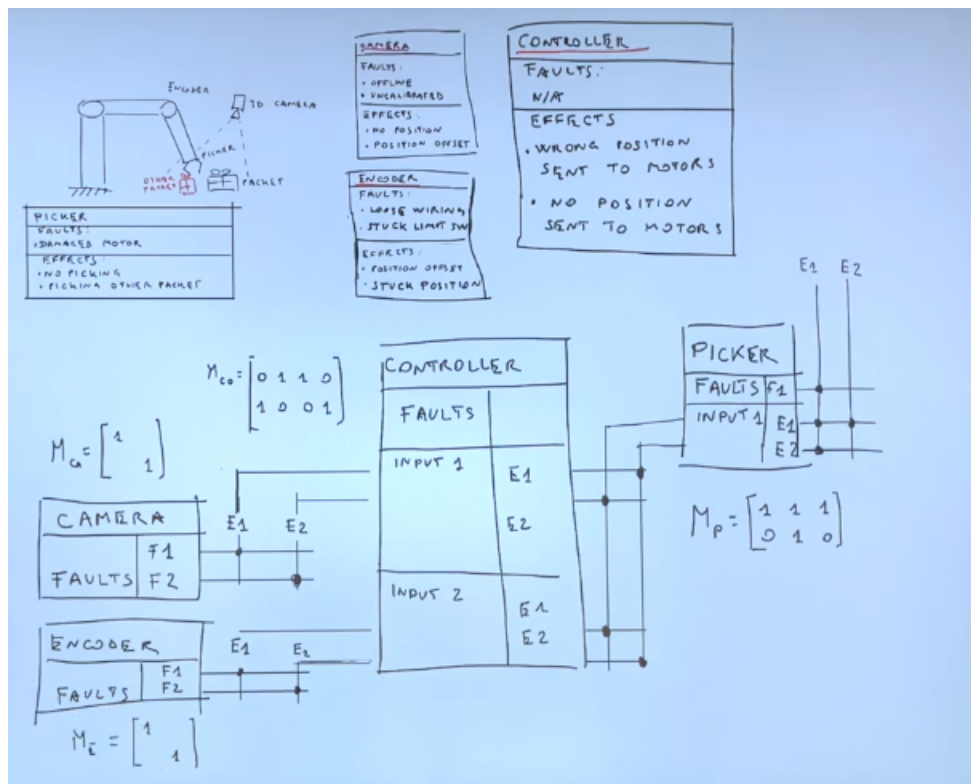 ENCODER
3D CAMERA
PICKER
OTHER
PACKET
PACKET
PICKER
FAULTS:
• DAMAGED MOTOR
EFFECTS:
• NO PICKING
• PICKING OTHER PACKET
CAMERA
FAULTS:
• OFFLINE
• UNCALIBRATED
EFFECTS:
• NO POSITION
• POSITION OFFSET
ENCODER
FAULTS:
• LOOSE WIRING
• STUCK LIMIT SW
EFFECTS:
• POSITION OFFSET
• STUCK POSITION
CONTROLLER
FAULTS:
N/A
EFFECTS
• WRONG POSITION
SENT TO MOTORS
• NO POSITION
SENT TO MOTORS
E1 E2
PICKER
FAULTS F1
INPUT 1 E1
E2
Mp = [1 1 1
0 1 0]
Mco = [0 1 1 0
1 0 0 1]
CONTROLLER
FAULTS
INPUT 1 E1
E2
INPUT 2 E1
E2
Mca = [1
1]
CAMERA
E1 E2
F1
FAULTS F2
ENCODER
E1 E2
F1
FAULTS F2
ME = [1
1]